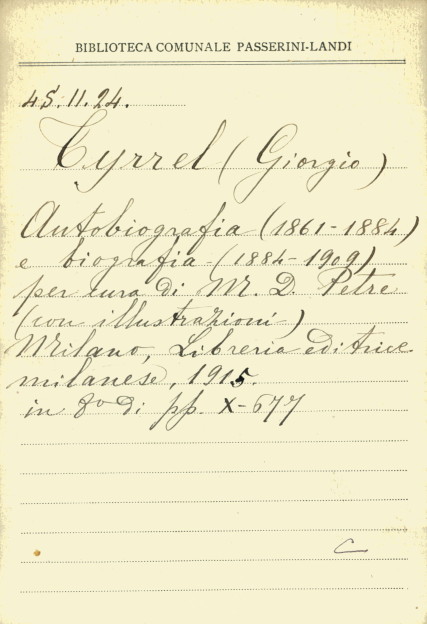 BIBLIOTECA COMUNALE PASSERINI-LANDI
45.11.24.
Tyrrel (Giorgio)
Autobiografia (1861-1884)
e biografia (1884-1909)
per cura di M. D. Petre
(con illustrazioni)
Milano, Libreria editrice
milanese, 1915.
in 8º di pp. X-677
C